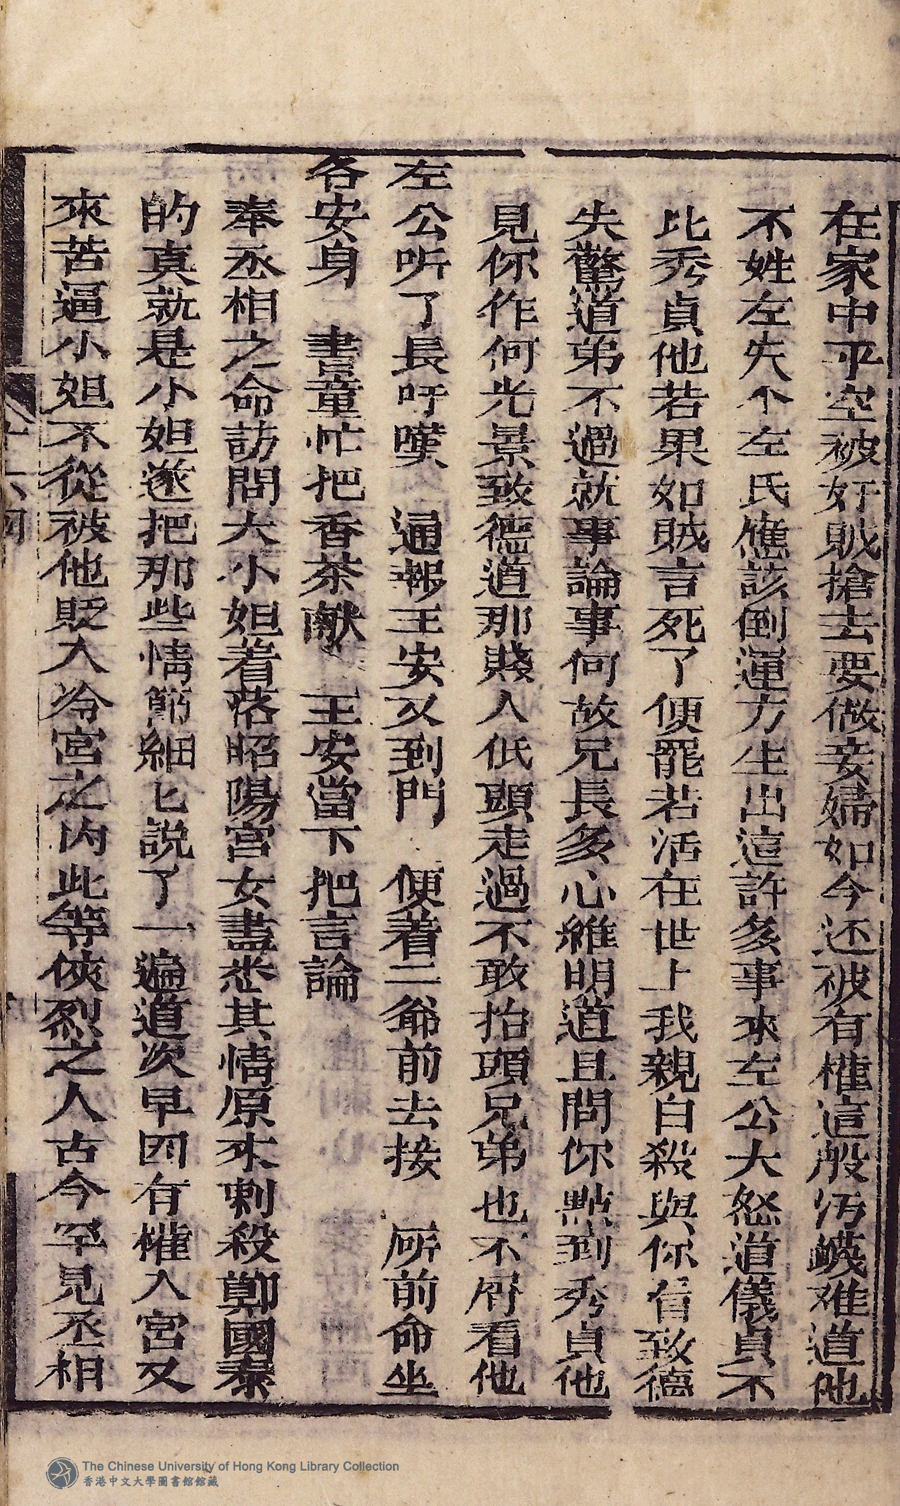 在家中平空被奸賊搶去要做妾婦如今还被有權這般汚衊难道他
不姓左失个左氏應該倒運方生出這許多事來左公大怒道儀貞不
比秀貞他若果如賊言死了便罷若活在世上我親自殺與你看致德
失驚道弟不過就事論事何故兄長多心維明道且問你點到秀貞他
見你作何光景致德道那賤人低頭走過不敢抬頭兄弟也不屑看他
左公听了長吁嘆 通報王安又到門 便着二爺前去接 所前命坐
各安身 書童忙把香茶献 王安當下把言論
奉丞相之命訪問大小姐着落昭陽宮女盡悉其情原來刺殺鄭國泰
的真就是小姐遂把那些情節細匕説了一遍道次早因有權入宮又
來苦逼小姐不從被他貶入冷宮之内此等俠烈之人古今罕見丞相
十六回
The Chinese University of Hong Kong Library Collection
香港中文大學圖書館館藏